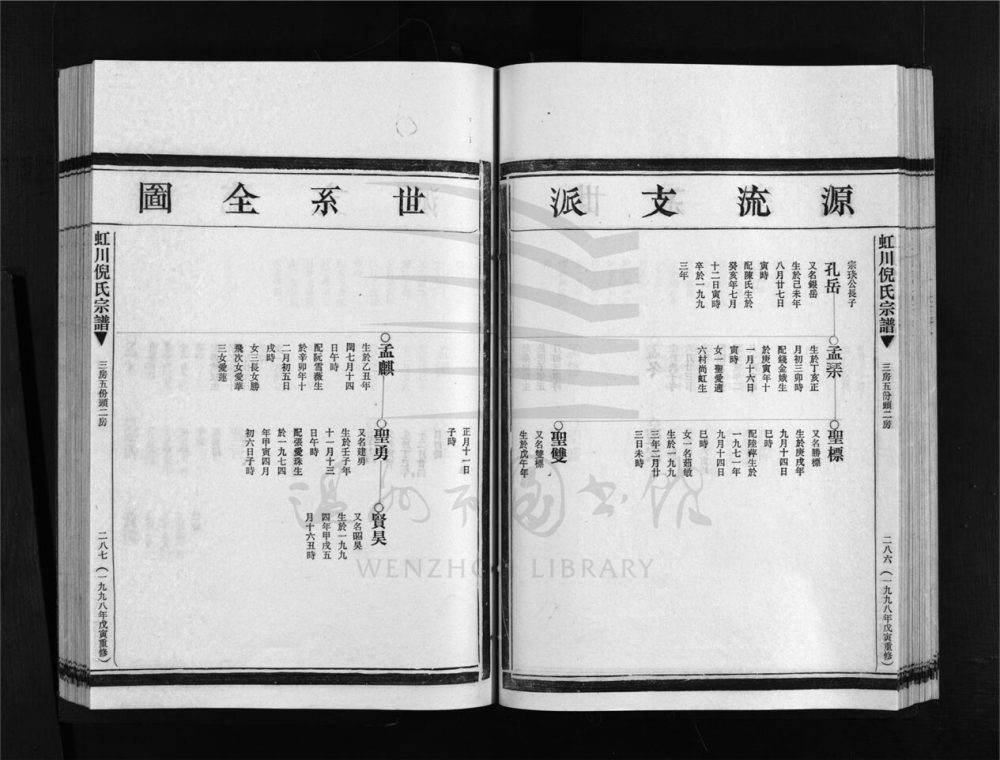 源流支派
虹川倪氏宗譜
三房五份頭二房
二八六（一九九八年戊寅重修）
宗玦公長子
孔岳
又名銀岳
生於己未年
八月廿七日
寅時
配陳氏生於
癸亥年七月
十二日寅時
卒於一九九
三年
孟崇
生於丁亥正
月初三卯時
配錢金娥生
於庚寅年十
一月十六日
寅時
女一聖愛適
六村尚虹生
聖標
又名勝標
生於庚戌年
九月十四日
巳時
配陸檸生於
一九七一年
九月十四日
巳時
女一名茹敏
生於一九九
三年二月廿
三日未時
聖雙
又名雙標
生於戊午年
世系全圖
正月十一日
子時
孟麒
生於乙丑年
閏七月十四
日午時
配阮雪薇生
於辛卯年十
二月初五日
戌時
女三長女勝
飛次女愛華
三女愛蓮
聖勇
又名建勇
生於壬子年
十一月十三
日午時
配張愛珠生
於一九七四
年甲寅四月
初六日子時
賢昊
又名昭昊
生於一九九
四年甲戌五
月十六丑時
虹川倪氏宗譜
三房五份頭二房
二八七（一九九八年戊寅重修）
温州市图书馆
WENZHOU LIBRARY